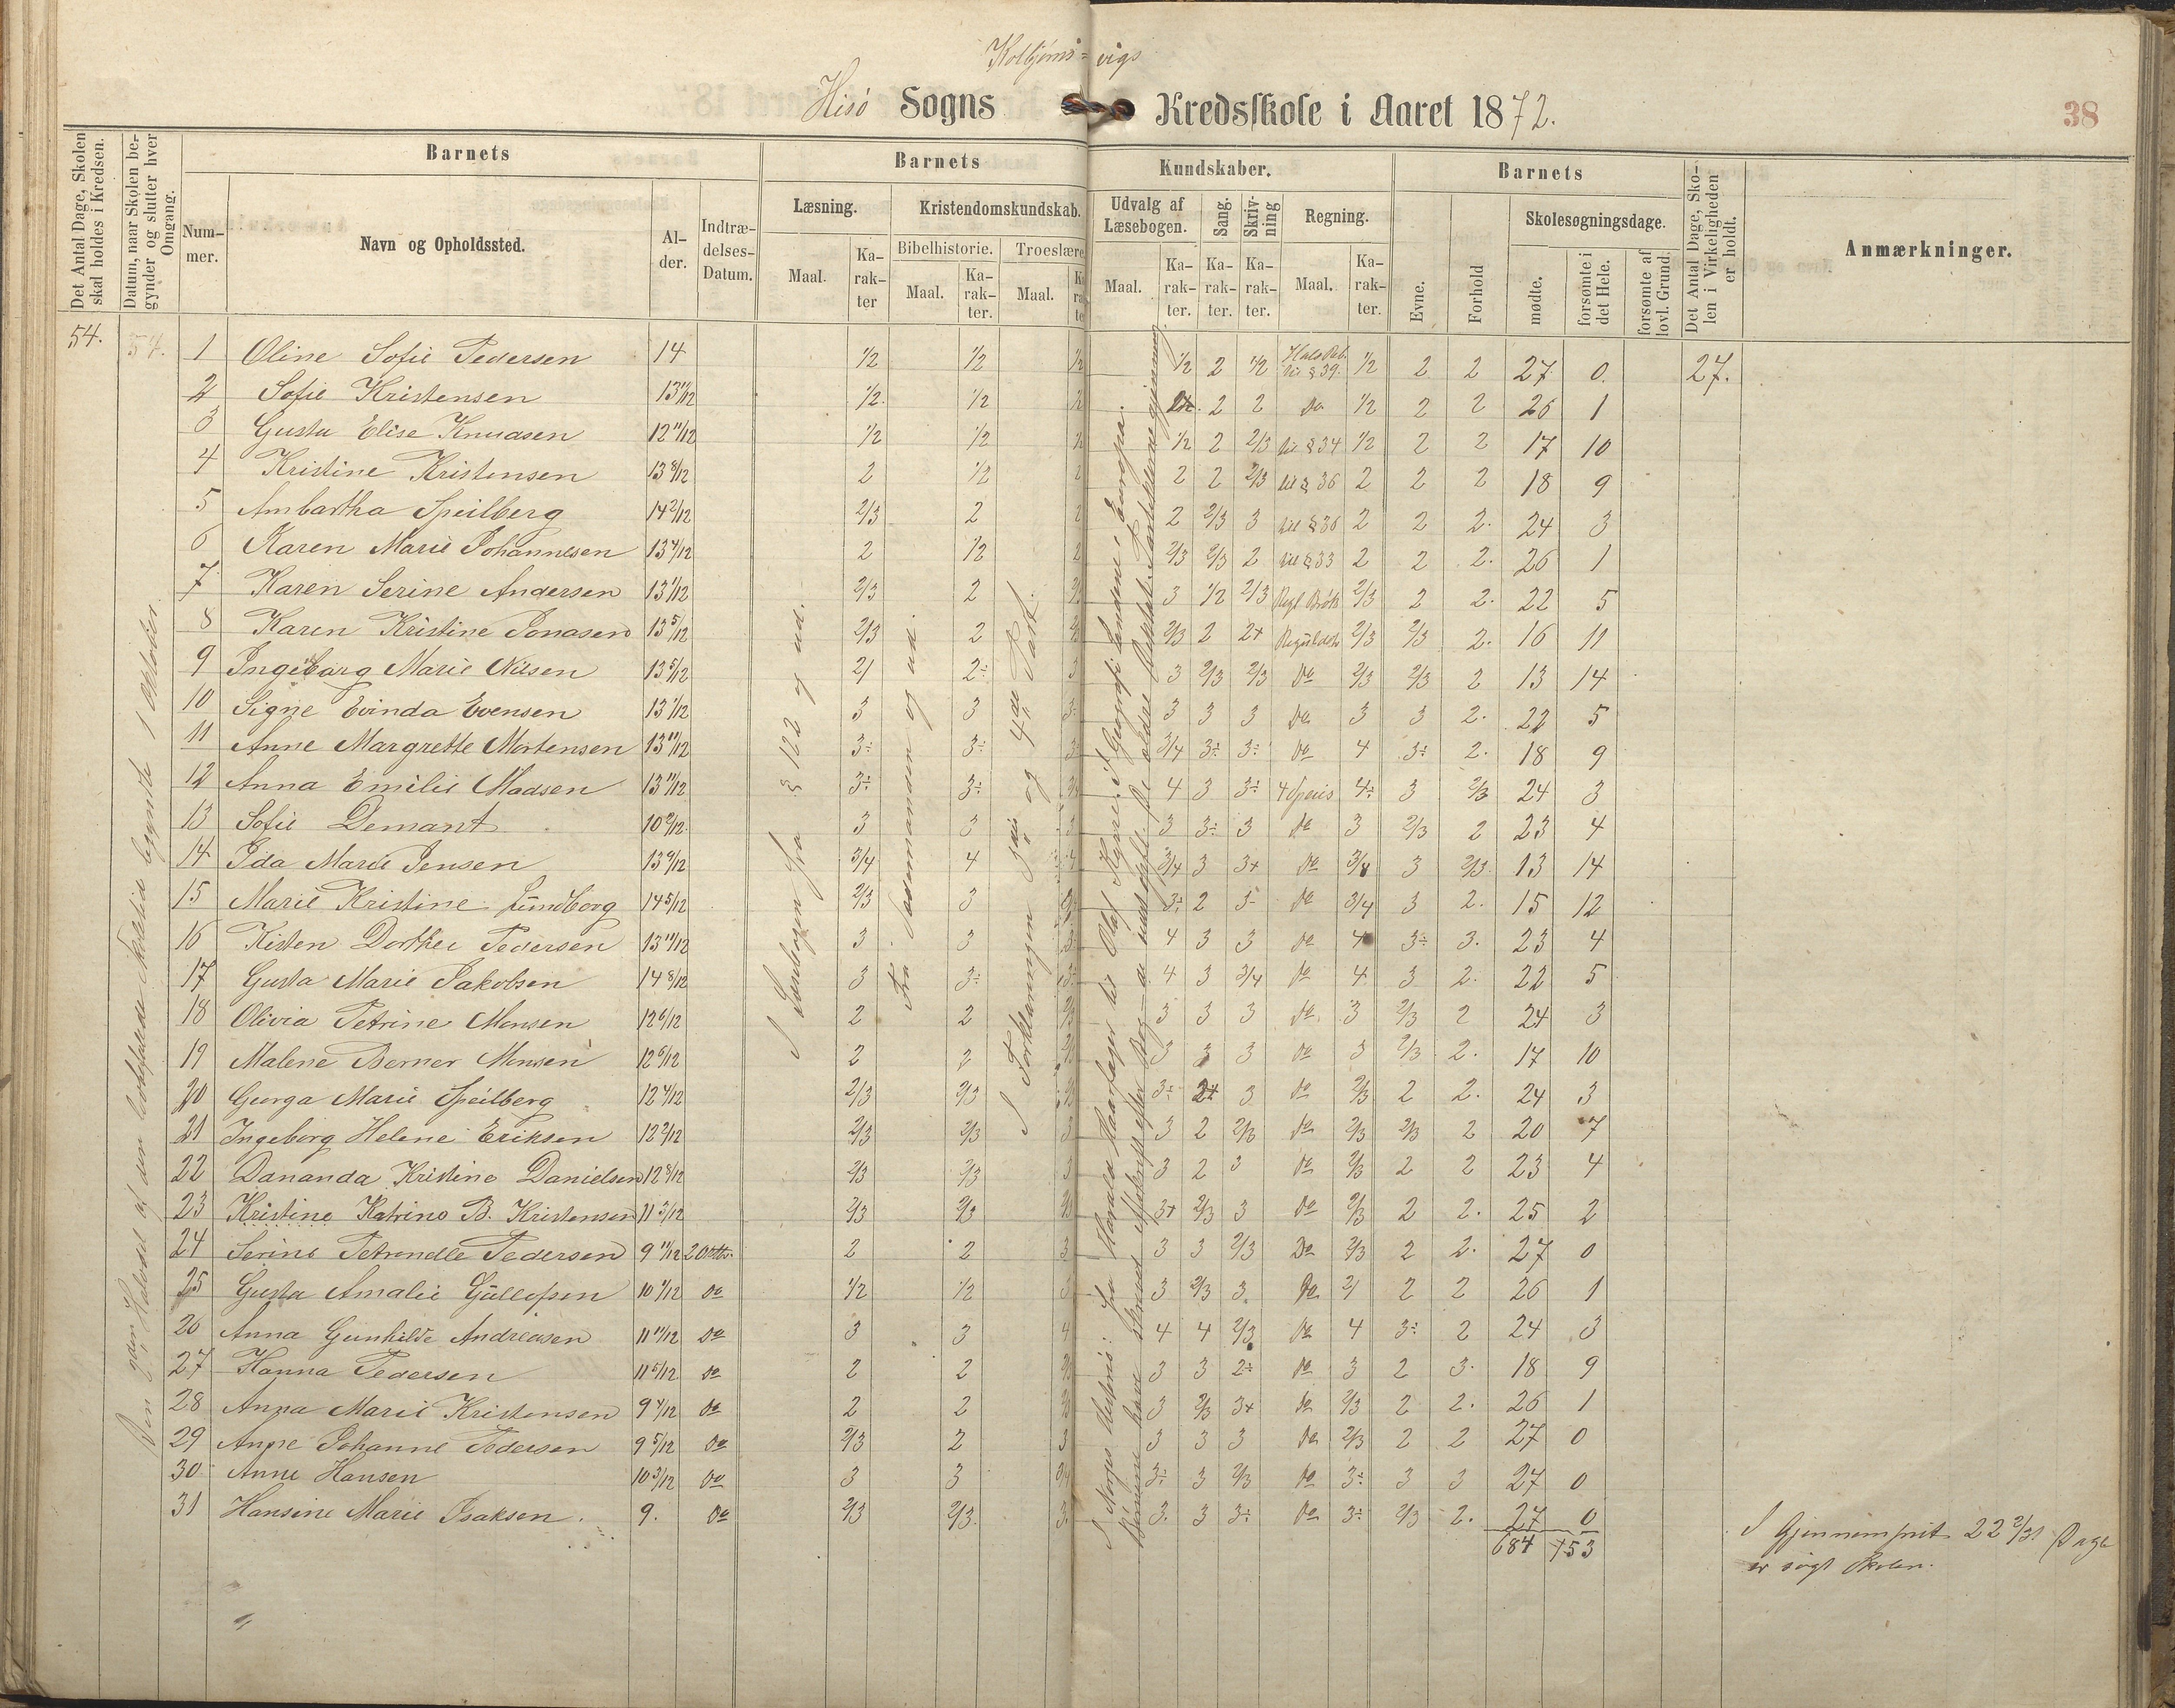 Kolbjørns=vigs
Hisø Sogns Kredsskole i Aaret 1872.
38
Det Antal Dage, Skolen skal holdes i Kredsen.
Datum, naar Skolen begynder og slutter hver Omgang.
Barnets
Nummer.
Navn og Opholdssted.
Alder.
Indtrædelses-Datum.
Barnets Kundskaber.
Læsning.
Maal. Karakter
Kristendomskundskab.
Bibelhistorie. Troeslære
Maal. Karakter. Maal.
Udvalg af Læsebogen.
Maal. Karakter.
Sang. Karakter.
Skrivning Karakter.
Regning.
Maal. Karakter.
Barnets
Evne. Forhold
Skolesøgningsdage.
mødte. forsømte i det Hele. forsømte af lovl. Grund.
Det Antal Dage, Skolen i Virkeligheden er holdt.
Anmærkninger.
54. 54.
1 Oline Sofie Pedersen 14 1/2 1/2 1/2 1/2 2 1/2 til § 39. 1/2 2 2 27 0. 27.
2 Sofie Kristensen 13 11/12 1/2. 1/2 1/2 2 2 Do 1/2 2 2 26 1
3 Gusta Elise Knudsen 12 11/12 1/2 1/2 1/2 1/2 2 2/3 til § 34 1/2 2 2 17 10
4 Kristine Kristensen 13 8/12 2 1/2 2 2 2 2/3 til § 36 2 2 2 18 9
5 Ambartha Speilberg 14 2/12 2/3 2 2 2 2/3 3 til § 36 2 2 2. 24 3
6 Karen Marie Johannesen 13 4/12 2 1/2 2 2/3 2/3 2 til § 33 2 2 2. 26 1
7 Karen Serine Andersen 13 1/12 2/3 2 3 1/2 2/3 Regl Brøk 2/3 2 2. 22 5
8 Karen Kristine Jonasen 13 5/12 2/3 2 2/3 2 2+ 2/3 2/3 2. 16 11
9 Ingeborg Marie Nilsen 13 5/12 2/ 2÷ 3 3 2/3 2/3 Do 2/3 2/3 2 13 14
10 Signe Evinda Evensen 13 1/12 3 3 3 3 3 3 Do 3 3 2. 22 5
11 Anne Margrette Mortensen 13 11/12 3÷ 3÷ 3 3/4 3÷ 3÷ Do 4 3÷ 2. 18 9
12 Anna Emilie Madsen 13 11/12 3÷ 3÷ 4 3 3÷ 4 Specis 4÷ 3 2/3 24 3
13 Sofie Demant 10 9/12 3 3 3 3 3÷ 3 Do 3 2/3 2 23 4
14 Ida Marie Jensen 13 9/12 3/4 4 4 3/4 3 3+ Do 3/4 3 2/3 13 14
15 Marie Kristine Lundborg 14 5/12 2/3 3 3÷ 2 3- Do 3/4 3 2. 15 12
16 Kisten Dorthea Pedersen 13 11/12 3 3 3 4 3 3 Do 4 3÷ 3. 23 4
17 Gusta Marie Jakobsen 14 8/12 3 3÷ 3÷ 4 3 3/4 Do 4 3 2. 22 5
18 Olivia Petrine Monsen 12 6/12 2 2 2/3 3 3 3 Do 3 2/3 2 24 3
19 Malene Berner Monsen 12 6/12 2 2 3 3 3 Do 3 2/3 2. 17 10
20 Georga Marie Speilberg 12 4/12 2/3 2/3 3÷ 2+ 3 Do 2/3 2 2. 24 3
21 Ingeborg Helene Eriksen 12 2/12 2/3 2/3 3 3 2 2/3 Do 2/3 2/3 2 20 7
22 Dananda Kristine Danielsen 12 8/12 2/3 2/3 3 3 2 3 Do 2/3 2 2 23 4
23 Kristine Katrine B. Kristensen 11 3/12 2/3 2/3 3+ 2/3 3 Do 2/3 2 2. 25 2
24 Serine Petrendle Pedersen 9 11/12 2 Oktbr. 2 2 3 3 3 2/3 Do 2/3 2 2. 27 0
25 Gusta Amalie Gullofsen 10 1/12 Do 1/2 1/2 3 3 2/3 3 Do 2/ 2 2 26 1
26 Anna Gunhilde Andreasen 11 11/12 Do 3 3 4 4 4 2/3 Do 4 3÷ 2 24 3
27 Hanna Pedersen 11 5/12 Do 2 2 3 3 2÷ Do 3 2 3. 18 9
28 Anna Marie Kristensen 9 4/12 Do 2 2 3 2/3 3+ Do 2/3 2 2. 26 1
29 Anne Johanne Pedersen 9 5/12 Do 2/3 2 3 3 3 3 Do 2/3 2 2 27 0
30 Anne Hansen 10 3/12 Do 3 3 3/4 3÷ 3 2/3 Do 3÷ 3 3 27 0
31 Hansine Marie Isaksen. 9. Do 2/3 2/3. 3. 3. 3 3÷ Do 3÷ 2/3 2. 27 0
684 153
I Gjennemsnit 22 2/31 Dage
er søgt Skolen.
1 Oktober.
I Læsebogen fra § 122 og ud.
Fra og ud.
I Forklaringen 3die og 4de Part.
I Norges Historie: fra Harald Haarfager til Olaf Kyrre. I Geografi: Landene i Europa.